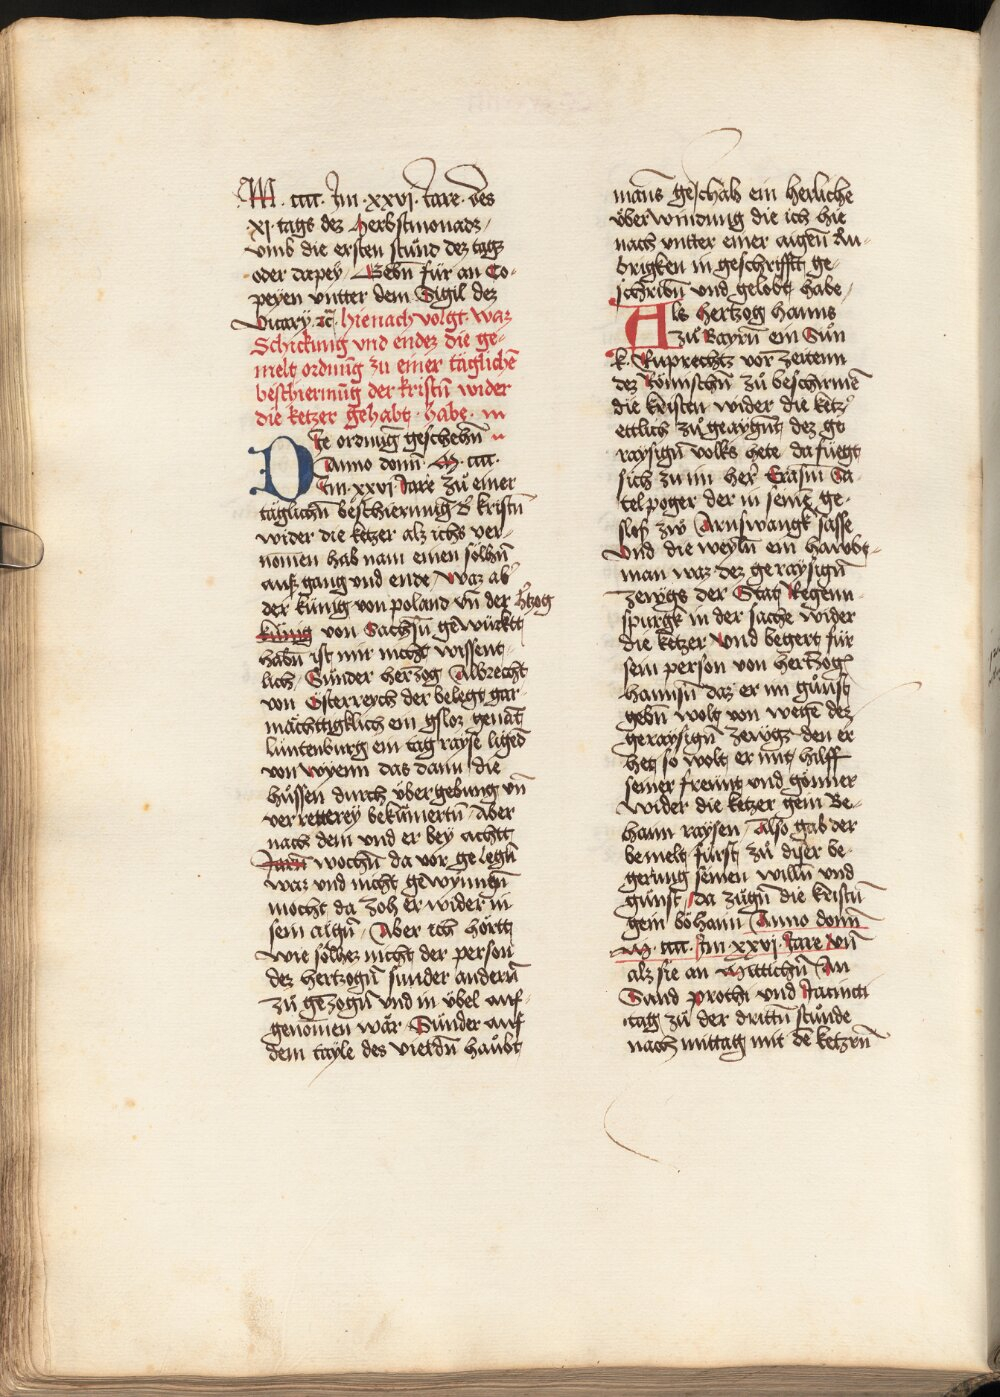 M · cccc · Im · xxvj · Jare · des
·xj· tags dez Herbstmonadz /
vmb die ersten stund dez tags
oder dapey / Gebn̄ für an Co-
peyen vntter dem Sigil dez
Vicary · zc̄ · hienach volgt · waz
Schickung vnd endez die ge-
melt ordnūg zu einer täglichē
beschiermūg der kristn̄ wider
die ketzer gehabt · habe · m
Die ordnūg geschehn̄
Anno domī · M · cccc ·
Im · xxvj · Jare zů einer
täglichn̄ beschiermung d' kristn̄
wider die ketzer alz ichs ver-
nomen hab nam einen sölhn̄
auszgang vnd ende / Waz ab'
der künig von poland vn̄ der h'tzog
künig von Sachsn̄ gewürktt
habn̄ ist mir nicht wissent-
lich / Sunder hertzog Albrecht
von Österreych der belegt gar
mächttigklich ein gsloz genāt
luntenburg ein tag rayse ligēd
von wyenn das dann die
hussen durch vbergebung vn̄
verretterey bekümertn̄ · Aber
nach dem vnd er bey achtt
Jarn̄ wochn̄ da vor gelegn̄
waz vnd nicht gewynngn̄
mocht da zoh er wider in
sein aign̄ / Aber ich hörtt
wie sölhez nicht der person
dez hertzogn̄ sunder andern̄
zů gezogn̄ vnd in vbel auf-
genomen wär · Sunder auf
dem tayle des vierdn̄ haubt-
māns geschah ein herliche
vberwindung die ich hie
nach vntter einer aigen̄ Ru-
brigken in geschrifftt ge-
schribn̄ vnd gelobt habe /
Als hertzog hanns
zů Bayrn̄ ein Sůn
k · Ruprechtz vor zeitenn
dez Römischn̄ zů beschirmē
die kristen wider die ketz'
ettlich zů geaygnt dez ge
raysign̄ volks hete da fuegt
sich zu im her' Erasm Sa-
telpoger der in seinē ge-
slosz zw Arnswangk sasse
Vnd die weyln̄ ein hawbt-
man waz dez geraysign̄
zewgs der Stat Regenn-
spurgk in der sache wider
die ketzer Vnd begert für
sein person von hertzog
hannsn̄ daz er im gunst
gebn̄ wolt von wegē dez
geraysign̄ zewgz den er
het so wolt er mit hilff
seiner freunt vnd gönner
wider die ketzer gein Be-
ham raysen / Also gab der
bemelt fürst zů diser be-
gerung seinen willn̄ vnd
gunst / da zugn̄ die kristn̄
gein böhann Anno domī
M · cccc · Im · xxvj · Jare Vn̄
alz sie an Mittichn̄ An
Sand prothi vnd Jacincti
tag zů der drittn̄ stunde
nach mittag mit dē ketzrn̄